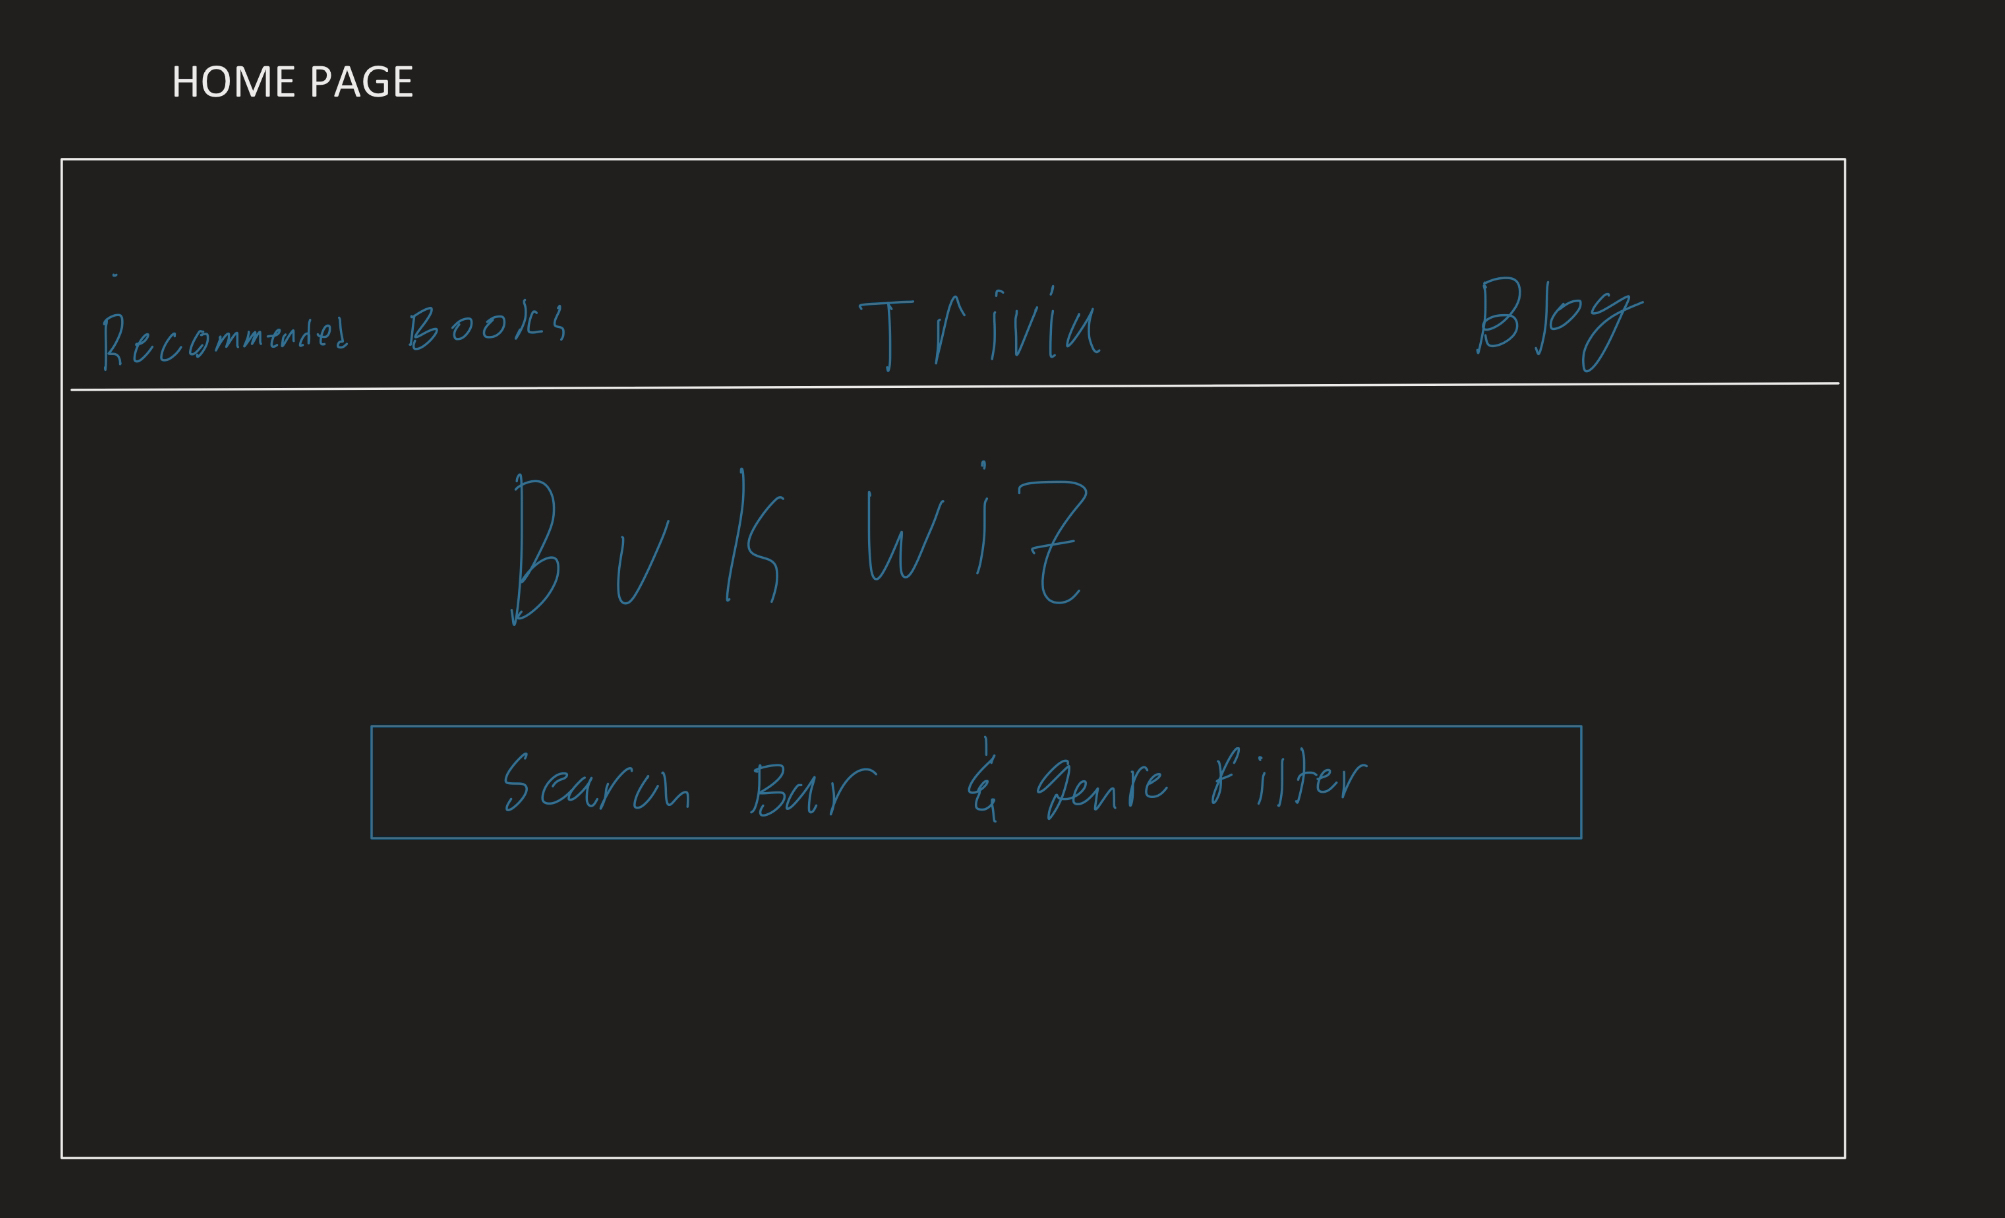 HOME PAGE
Recommended Books Trivia Blog
Buk wiz
Search Bar & genre filter